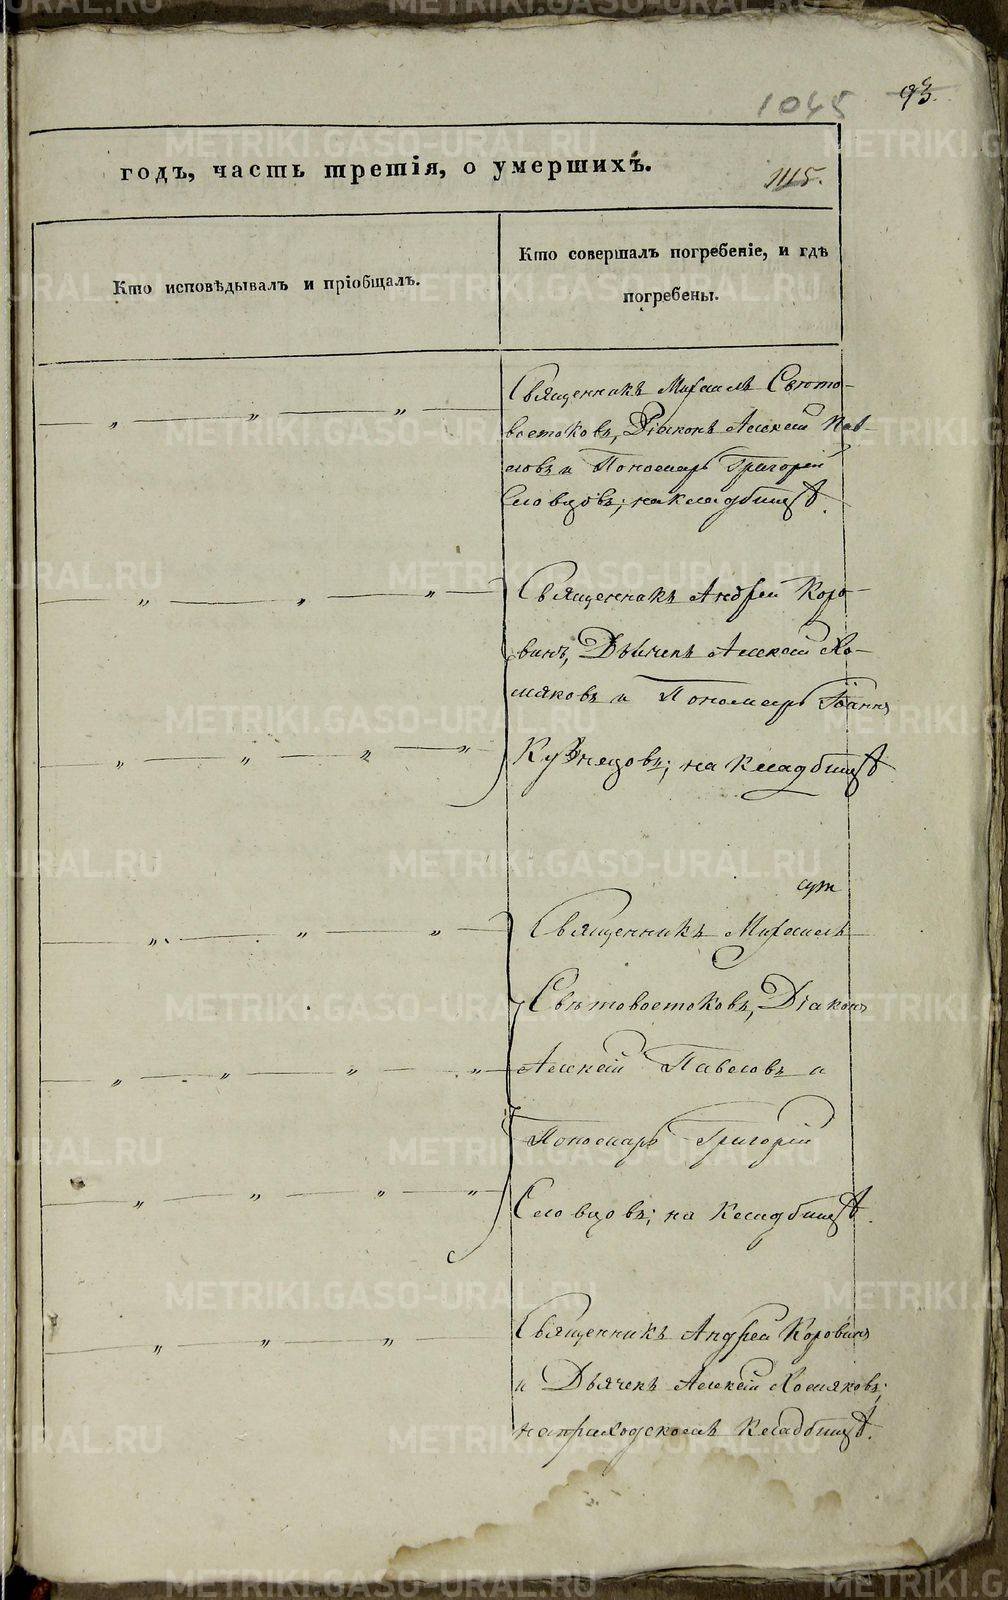 1045
93.
годъ, часть третія, о умершихъ.
1115.
Кто исповѣдывалъ и пріобщалъ.
Кто совершалъ погребеніе, и гдѣ
погребены.
Священникъ Михаилъ Свѣто-
востоковъ, Діаконъ Алексѣй Пав-
ловъ и Пономарь Григорій
Словцовъ; на кладбищѣ.
Священникъ Андрей Коро-
винъ, Дьячекъ Алексѣй Хо-
мяковъ и Пономарь Іоаннъ
Кузнецовъ; на кладбищѣ
Священникъ Михаилъ
Свѣтовостоковъ, Діаконъ
Алексѣй Павловъ и
Пономарь Григорій
Словцовъ; на кладбищѣ.
Священникъ Андрей Коровинъ
и Дьячекъ Алексѣй Хомяковъ;
на приходскомъ кладбищѣ.
METRIKI.GASO-URAL.RU